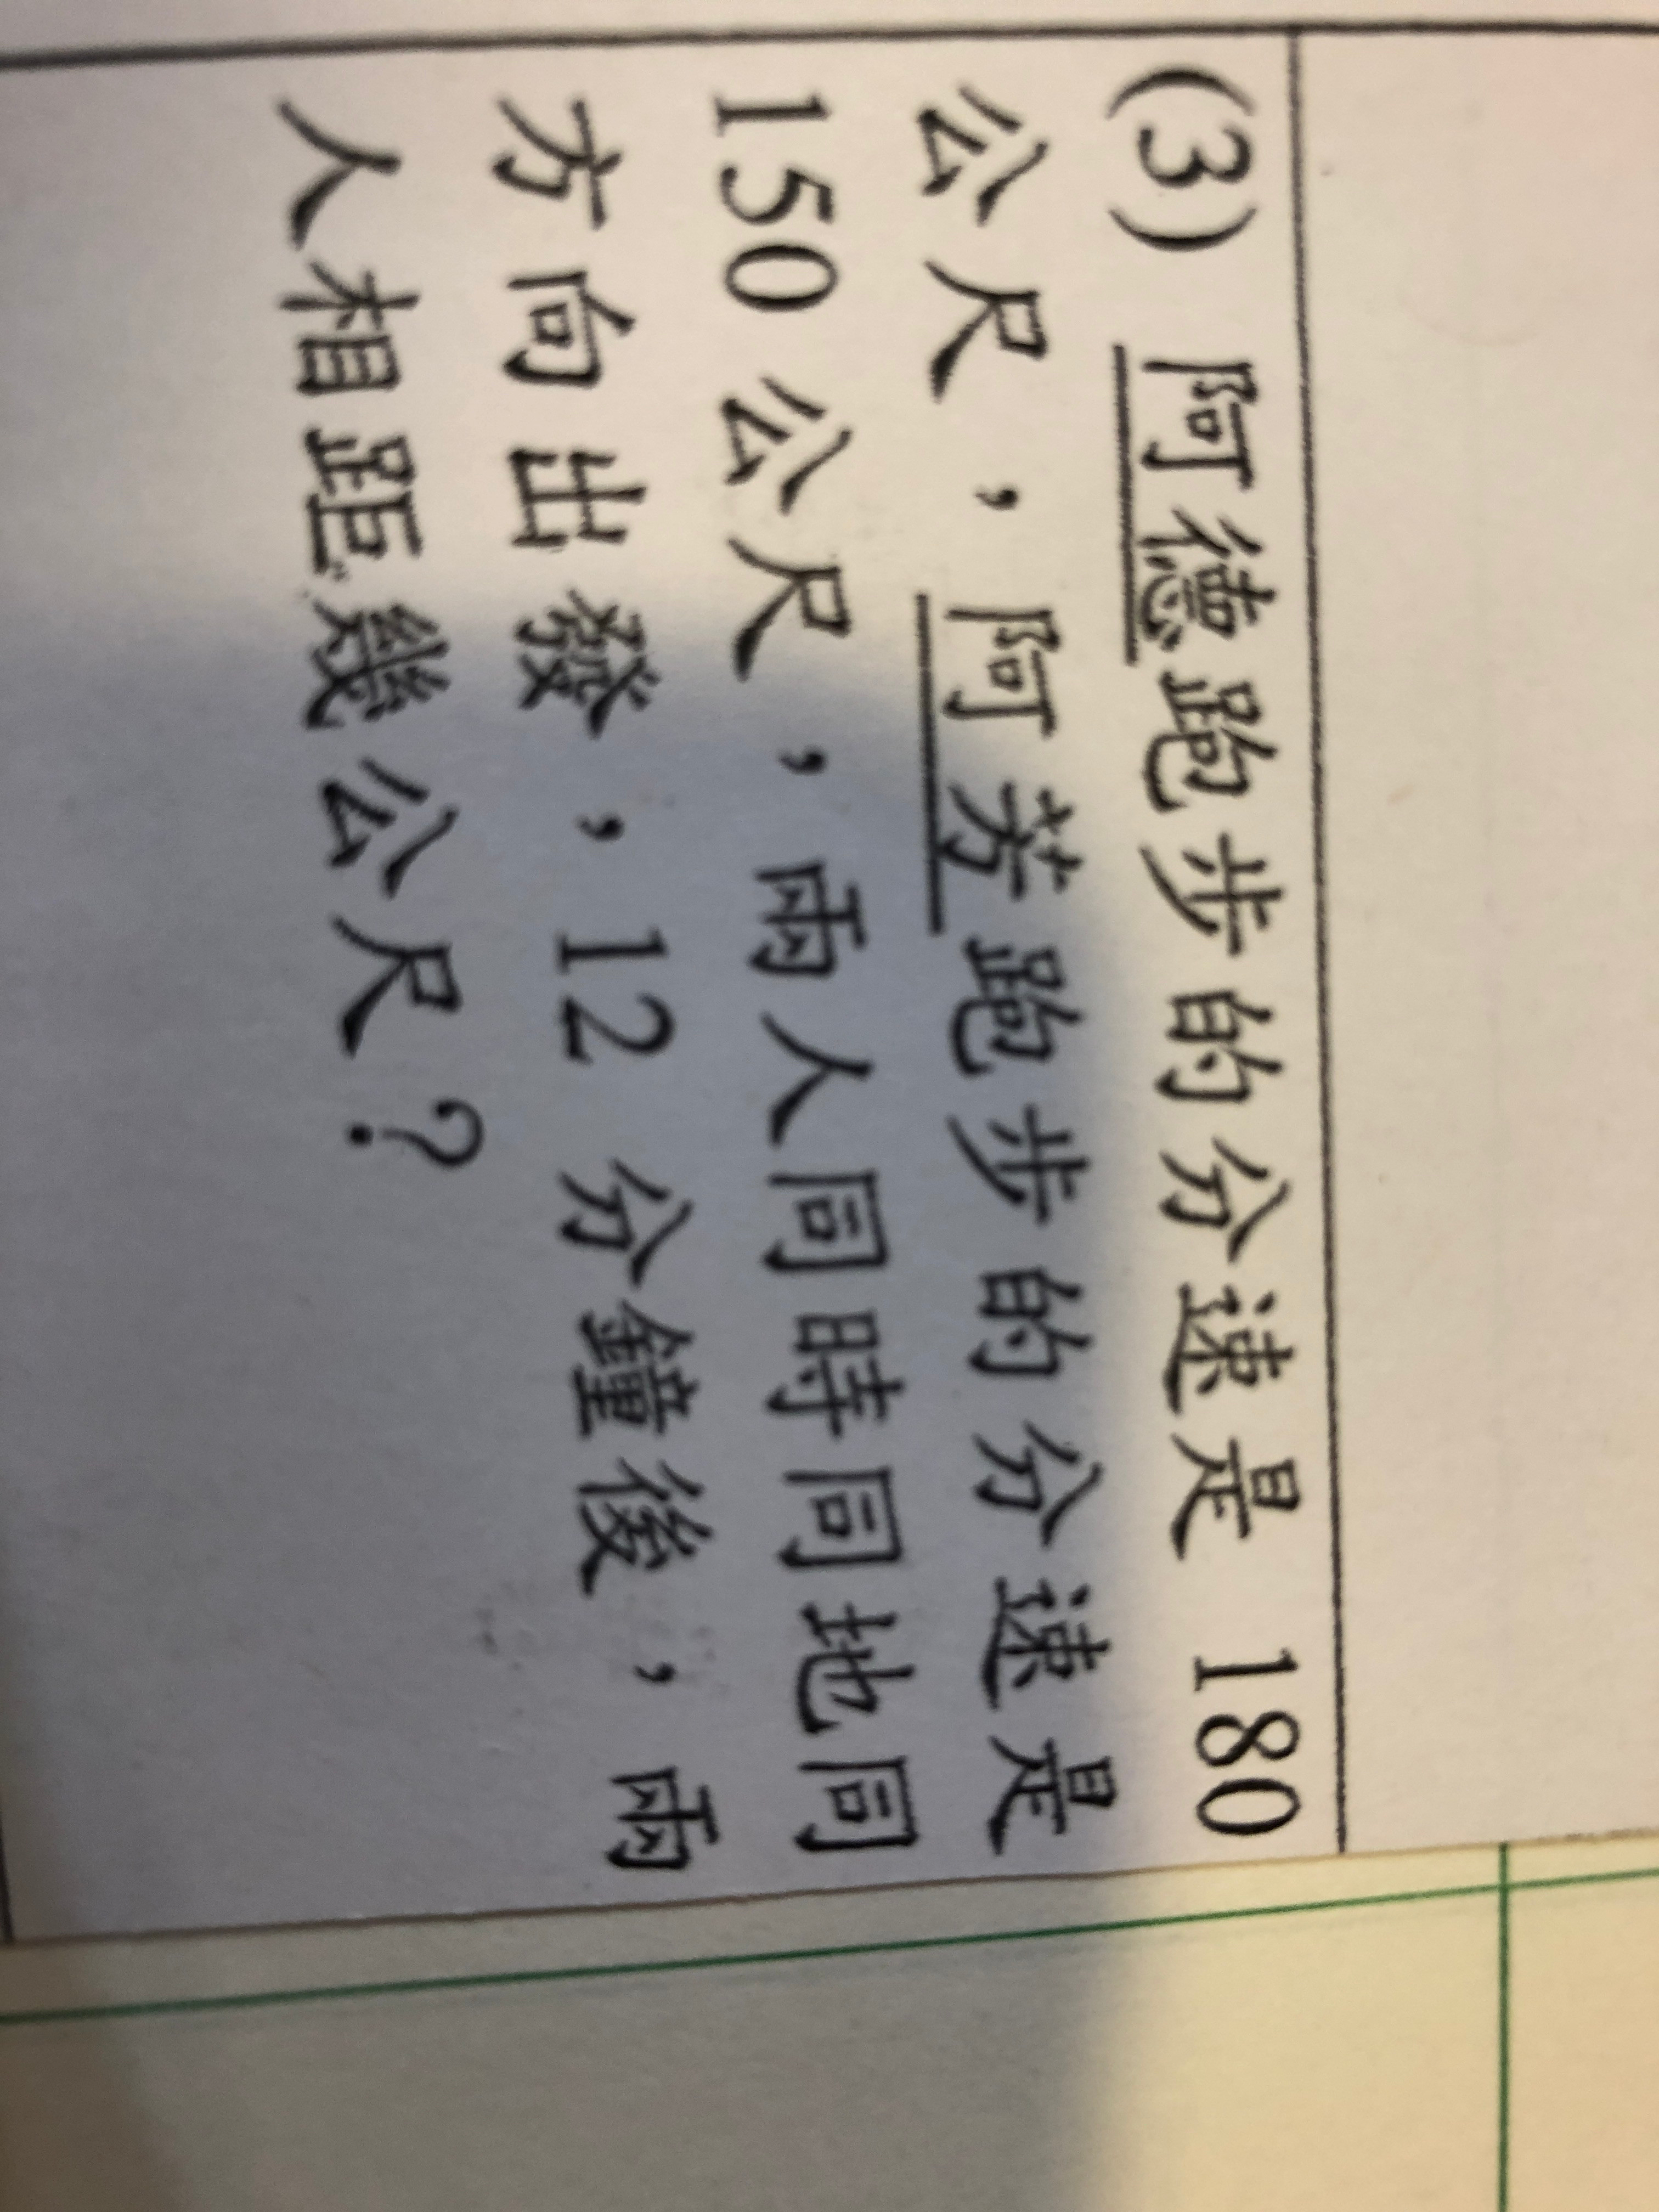 (3) 阿德跑步的分速是 180
公尺，阿芳跑步的分速是
150 公尺，兩人同時同地同
方向出發，12 分鐘後，兩
人相距幾公尺？